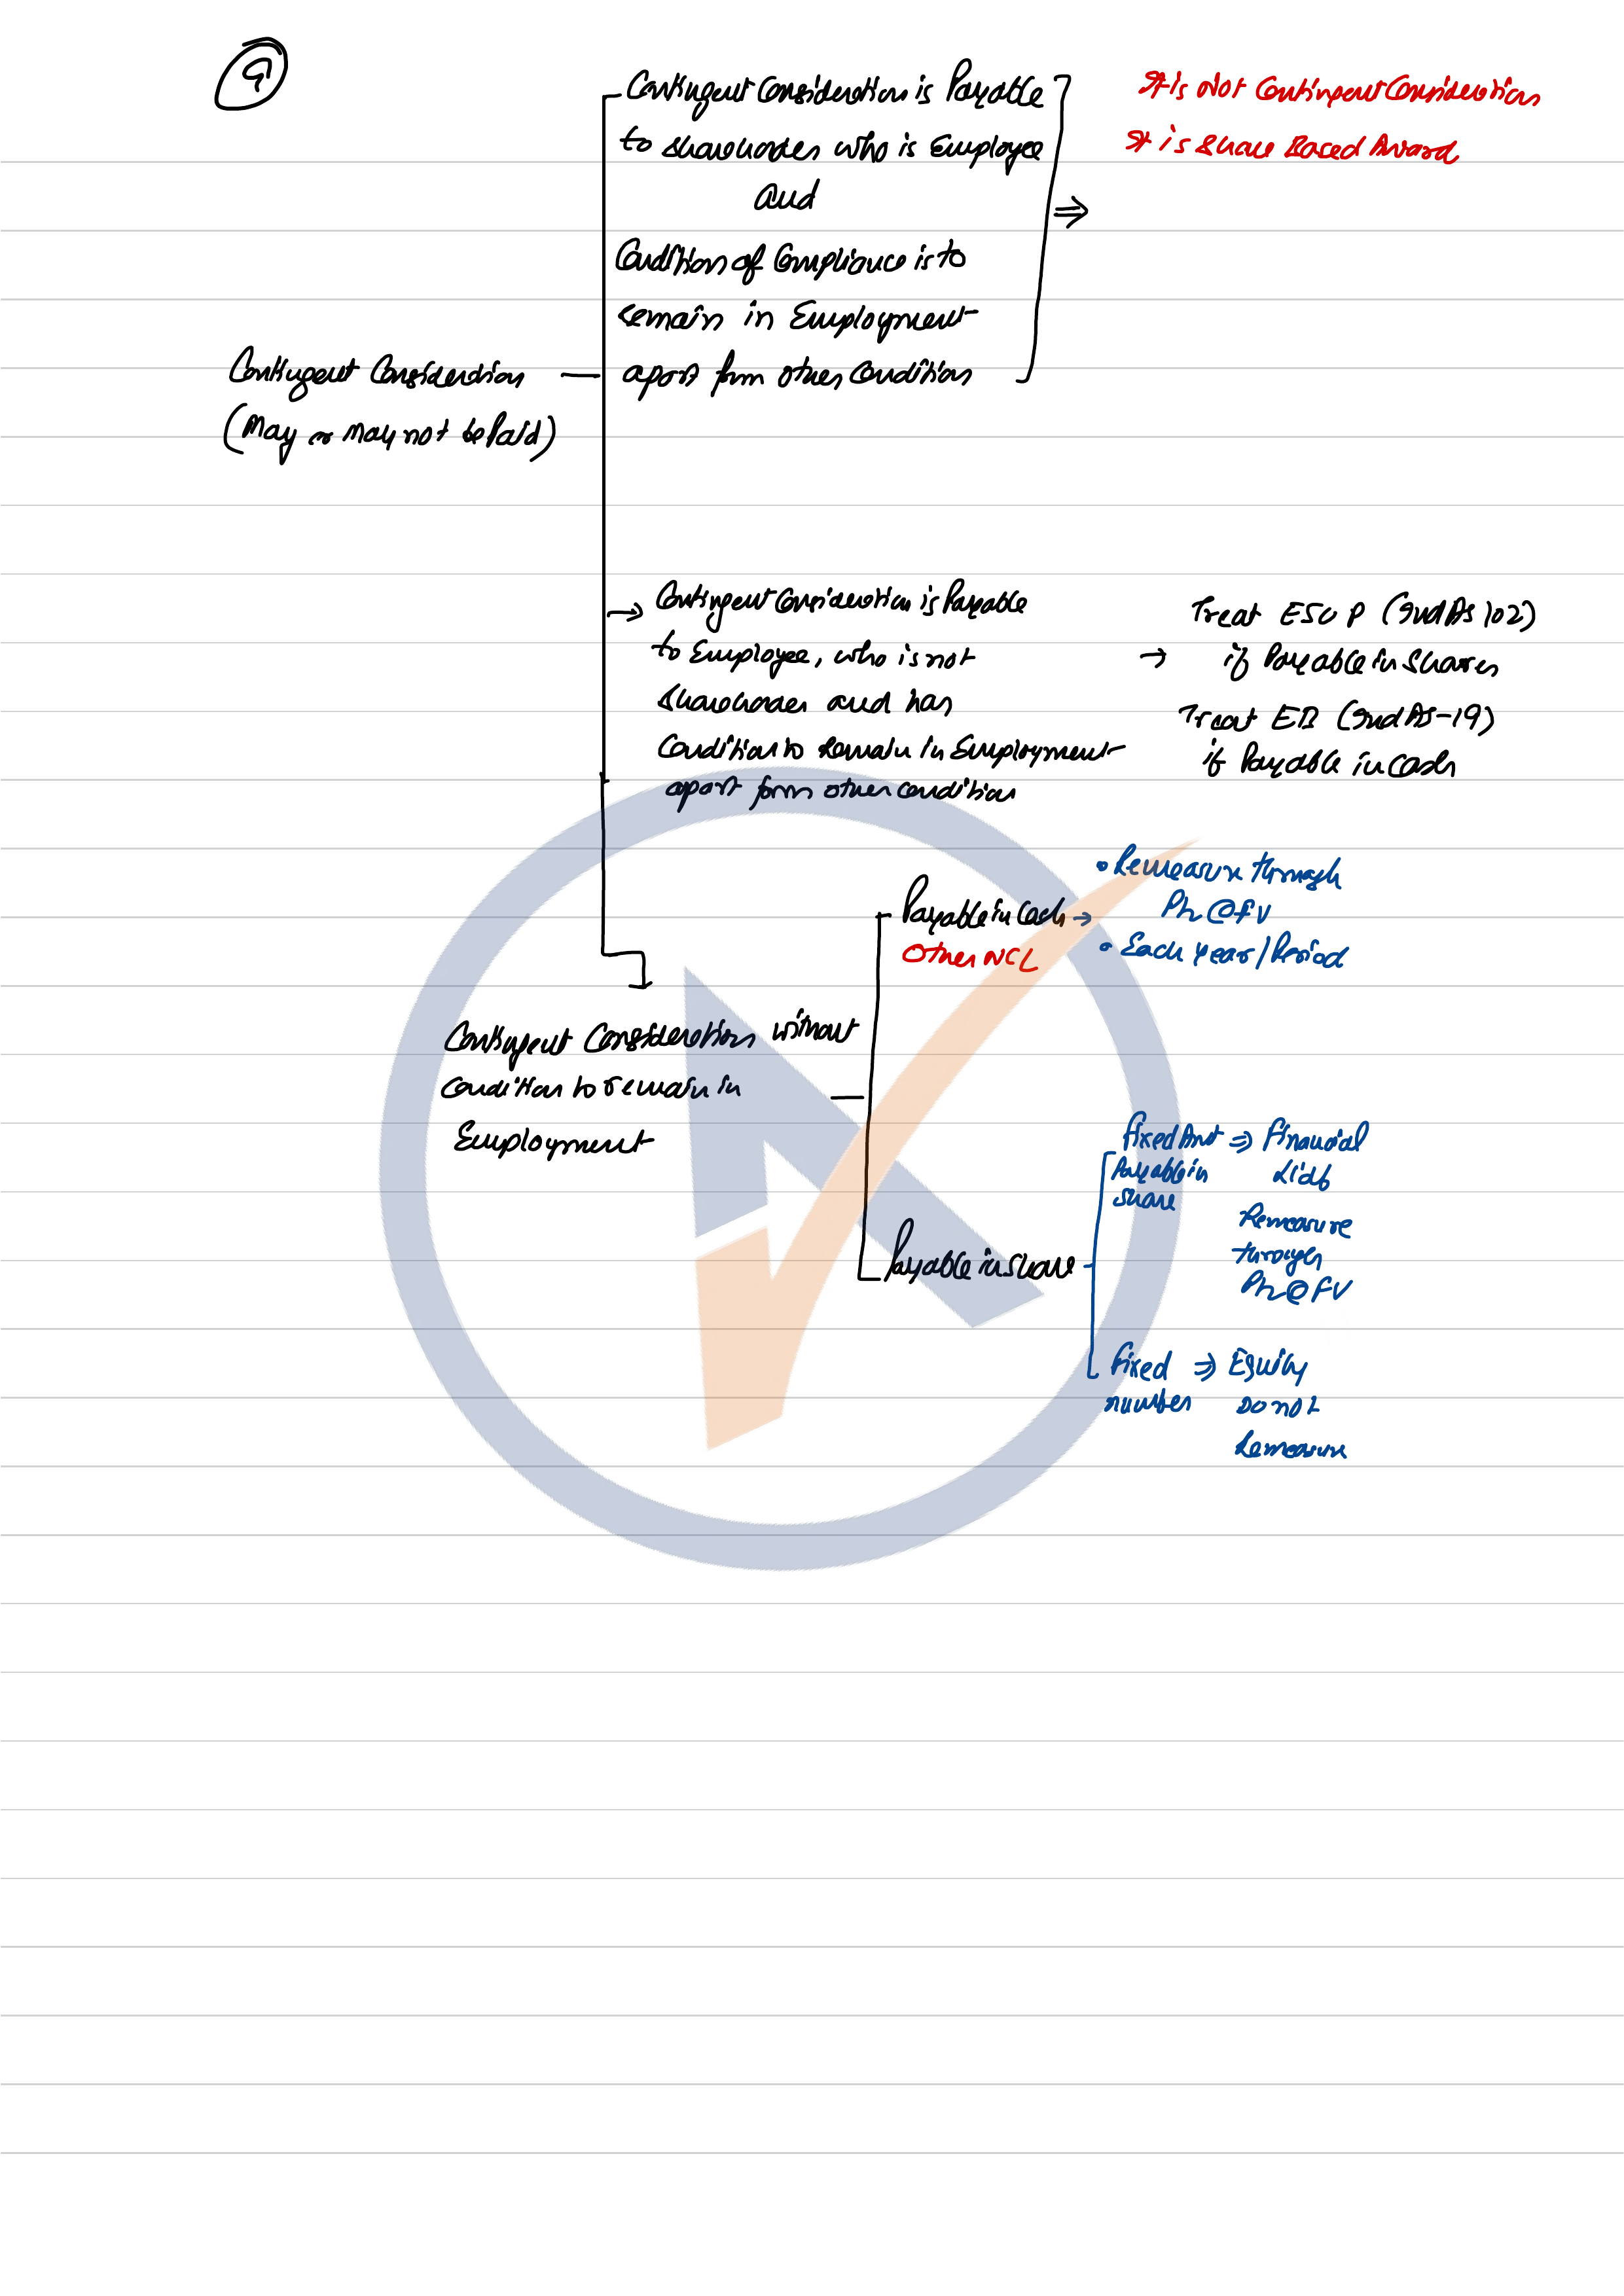 9
Contingent Consideration is Payable
to shareholder who is Employee
and
Condition of Compliance is to
remain in Employment
apart form other Condition
⇒
It is Not Contingent Consideration
It is Share Based Award
Contingent Consideration
(May or May not be Paid)
→ Contingent Consideration is Payable
to Employee, who is not
shareholder and has
Condition to Remain in Employment
apart form other condition
→
Treat ESOP (Ind AS 102)
if Payable in Shares
Treat EB (Ind AS-19)
if Payable in Cash
Contingent Consideration without
Condition to remain in
Employment
Payable in Cash →
Other NCL
• Remeasure through
PL @ FV
• Each year/Period
Payable in Share
Fixed Amt ⇒ Financial
Payable in Liab
Share
Remeasure
through
PL @ FV
Fixed ⇒ Equity
number Do not
Remeasure